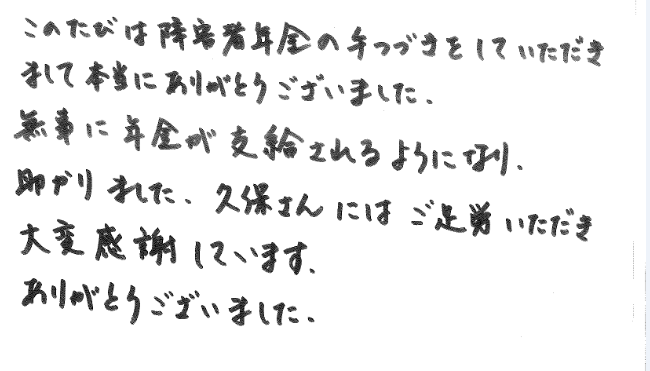 このたびは障害者年金の手つづきをしていただき
まして本当にありがとうございました.
無事に年金が支給されるようになり、
助かりました、久保さんにはご足労いただき
大変感謝しています.
ありがとうございました.